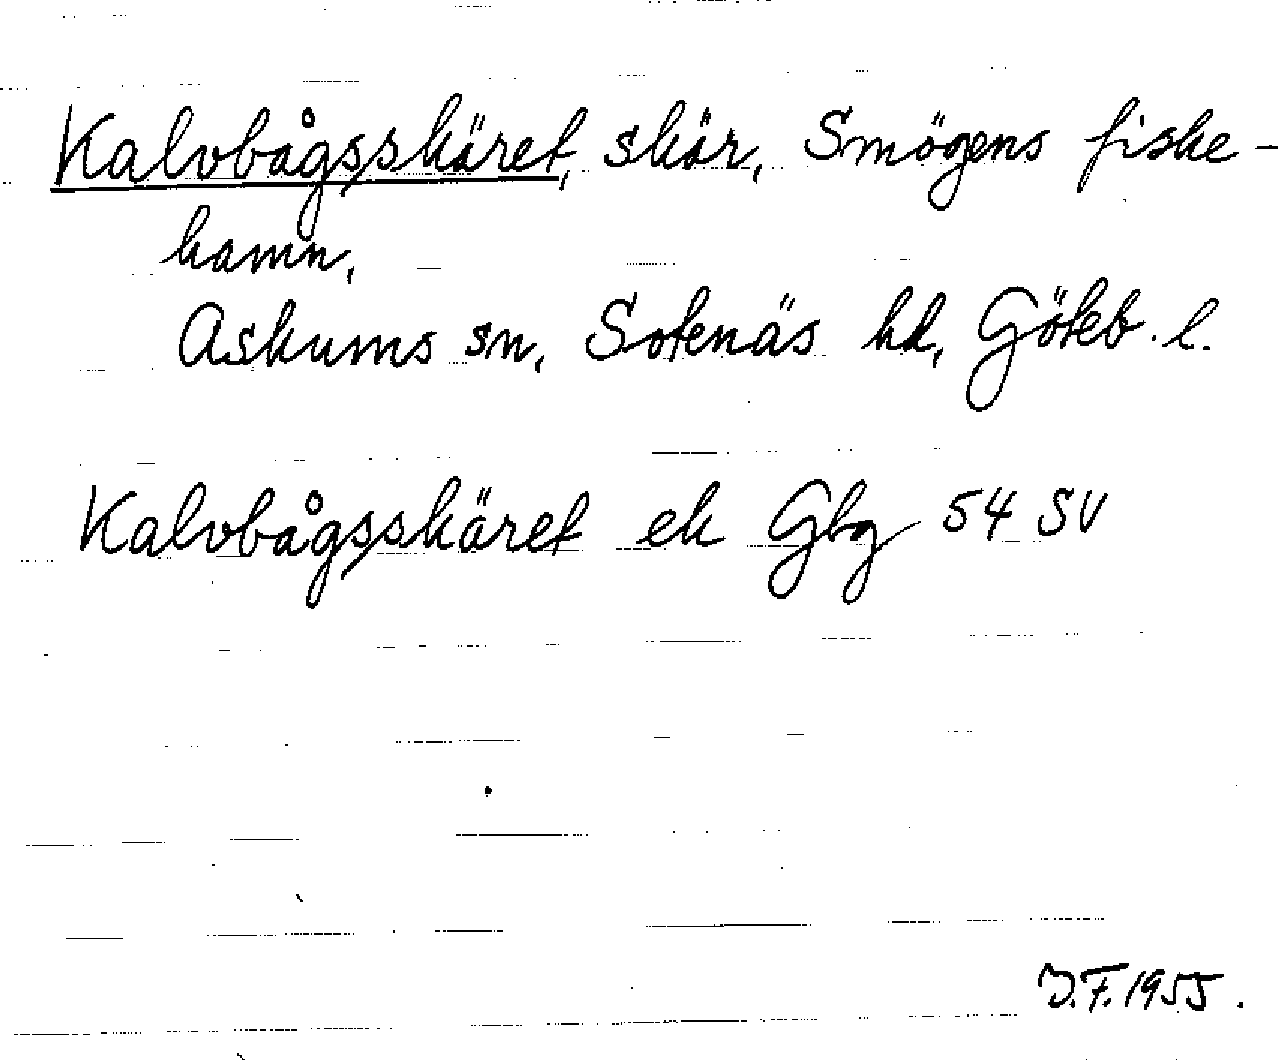 Kalvbågsskäret, skär, Smögens fiske-
hamn,
Askums sn, Sotenäs hd, Göteb. l.
Kalvbågsskäret ek Gbg 54 SV
J.F. 1955.